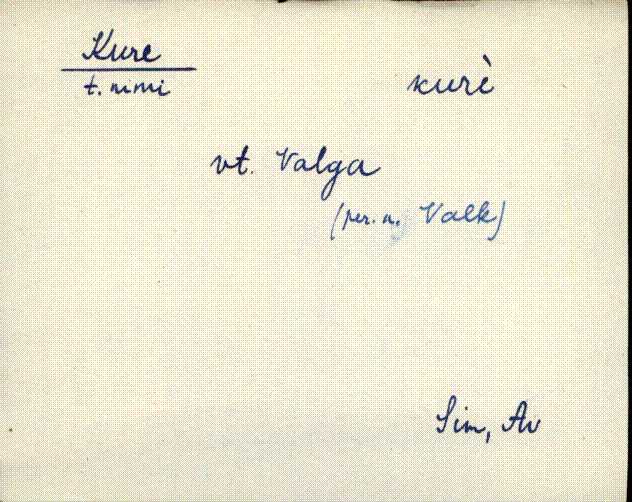 Kure
t. nimi
kurè
vt. Valga
(per. n. Valk)
Sim, Av